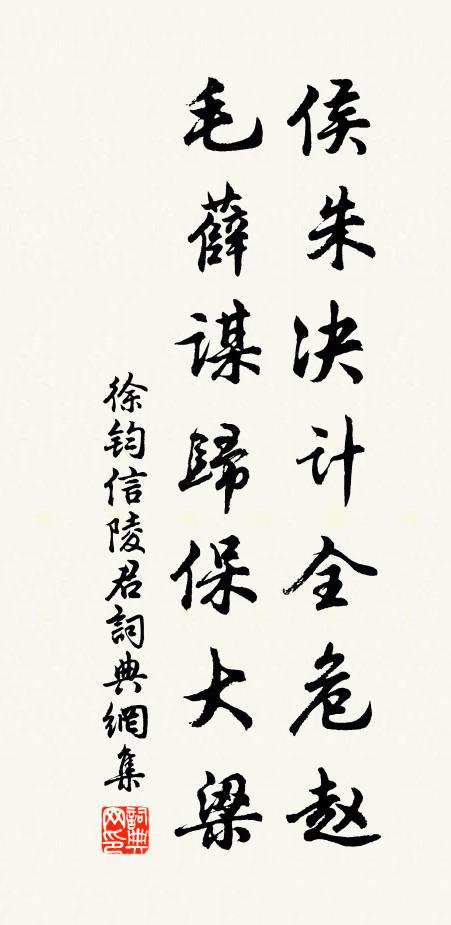 侯朱决计全危赵
毛薛谋歸保大梁
徐钧信陵君詞典網集
詞典网印